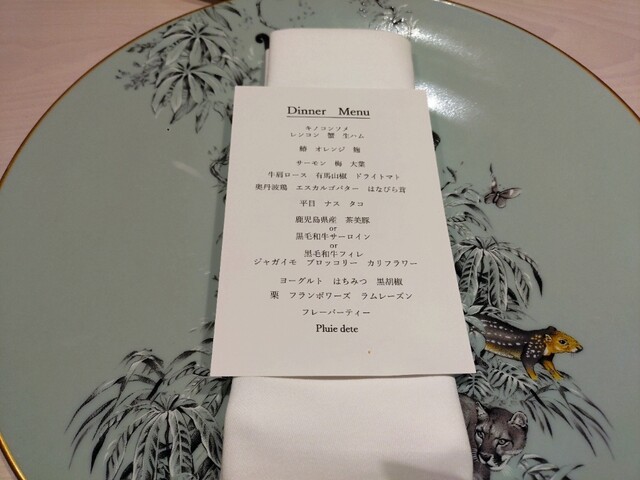 Dinner Menu
キノコンソメ
レンコン 蟹 生ハム
鰆 オレンジ 麹
サーモン 梅 大葉
牛肩ロース 有馬山椒 ドライトマト
奥丹波鶏 エスカルゴバター はなびら茸
平目 ナス タコ
鹿児島県産 茶美豚
or
黒毛和牛サーロイン
or
黒毛和牛フィレ
ジャガイモ ブロッコリー カリフラワー
ヨーグルト はちみつ 黒胡椒
栗 フランボワーズ ラムレーズン
フレーバーティー
Pluie dete